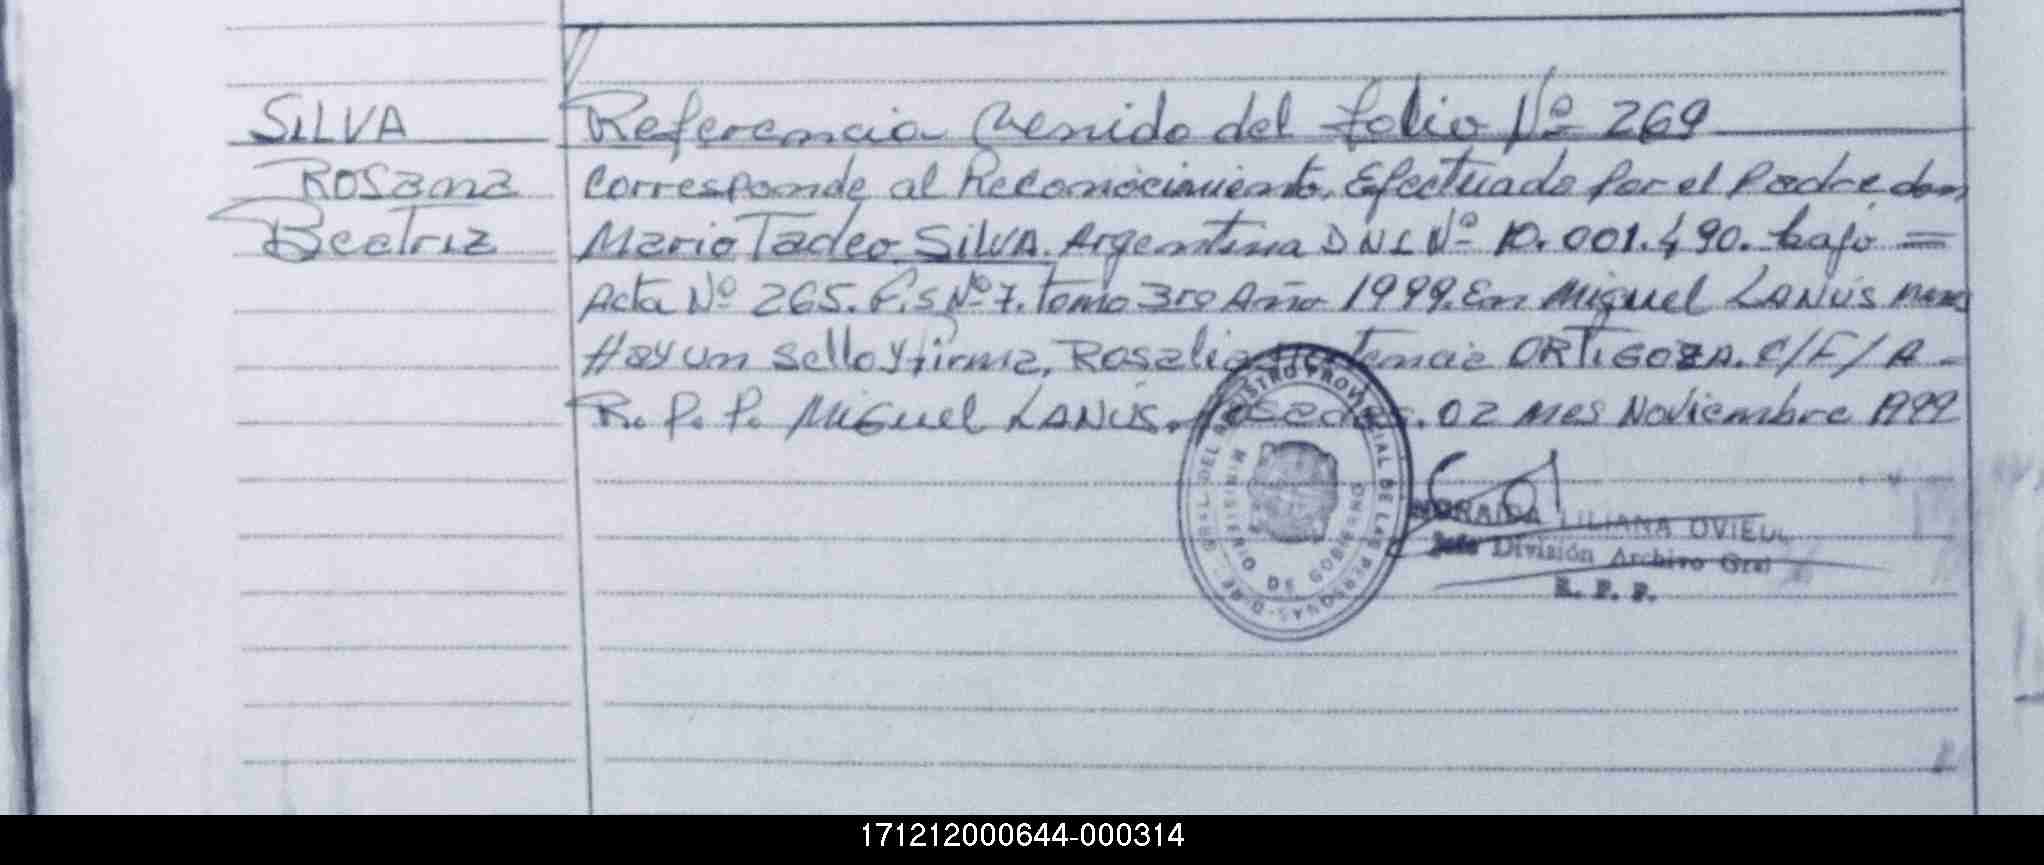 SILVA
Rosana
Beatriz
Referencia Venido del folio Nº 269
Corresponde al Reconocimiento. Efectuado por el Padre don
Mario Tadeo SILVA. Argentina DNI Nº 10.001.490. bajo =
Acta Nº 265. F.S Nº 7. Tomo 3ro Año 1999. En Miguel LANUS
Hay un sello y firma, Rosalia Hortencia ORTIGOZA. C/F/A -
R. P. P. Miguel LANUS. Posadas. 02 mes Noviembre 1999
DEL REGISTRO PROVINCIAL DE LAS PERSONAS
MINISTERIO DE GOBIERNO
LILIANA OVIEDO
Jefe División Archivo Gral
R. P. P.
171212000644-000314